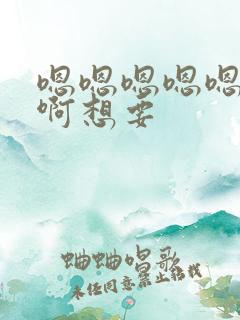 嗯嗯嗯嗯嗯
啊想要
蛐蛐唱歌
未经同意禁止转载